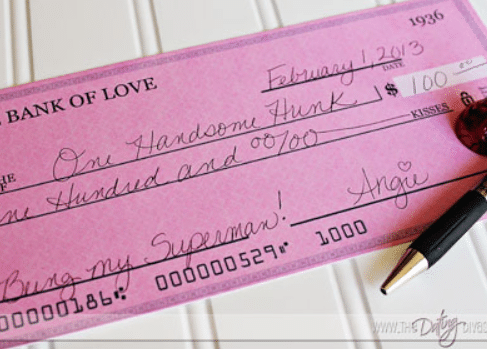 1936
BANK OF LOVE
February 1, 2013
DATE
HE
OF
One Handsome Hunk
$ 100 00
ne Hundred and 00/00
KISSES
Being my Superman!
Angie
00000186 000000529 1000
WWW.THE Dating DIVAS